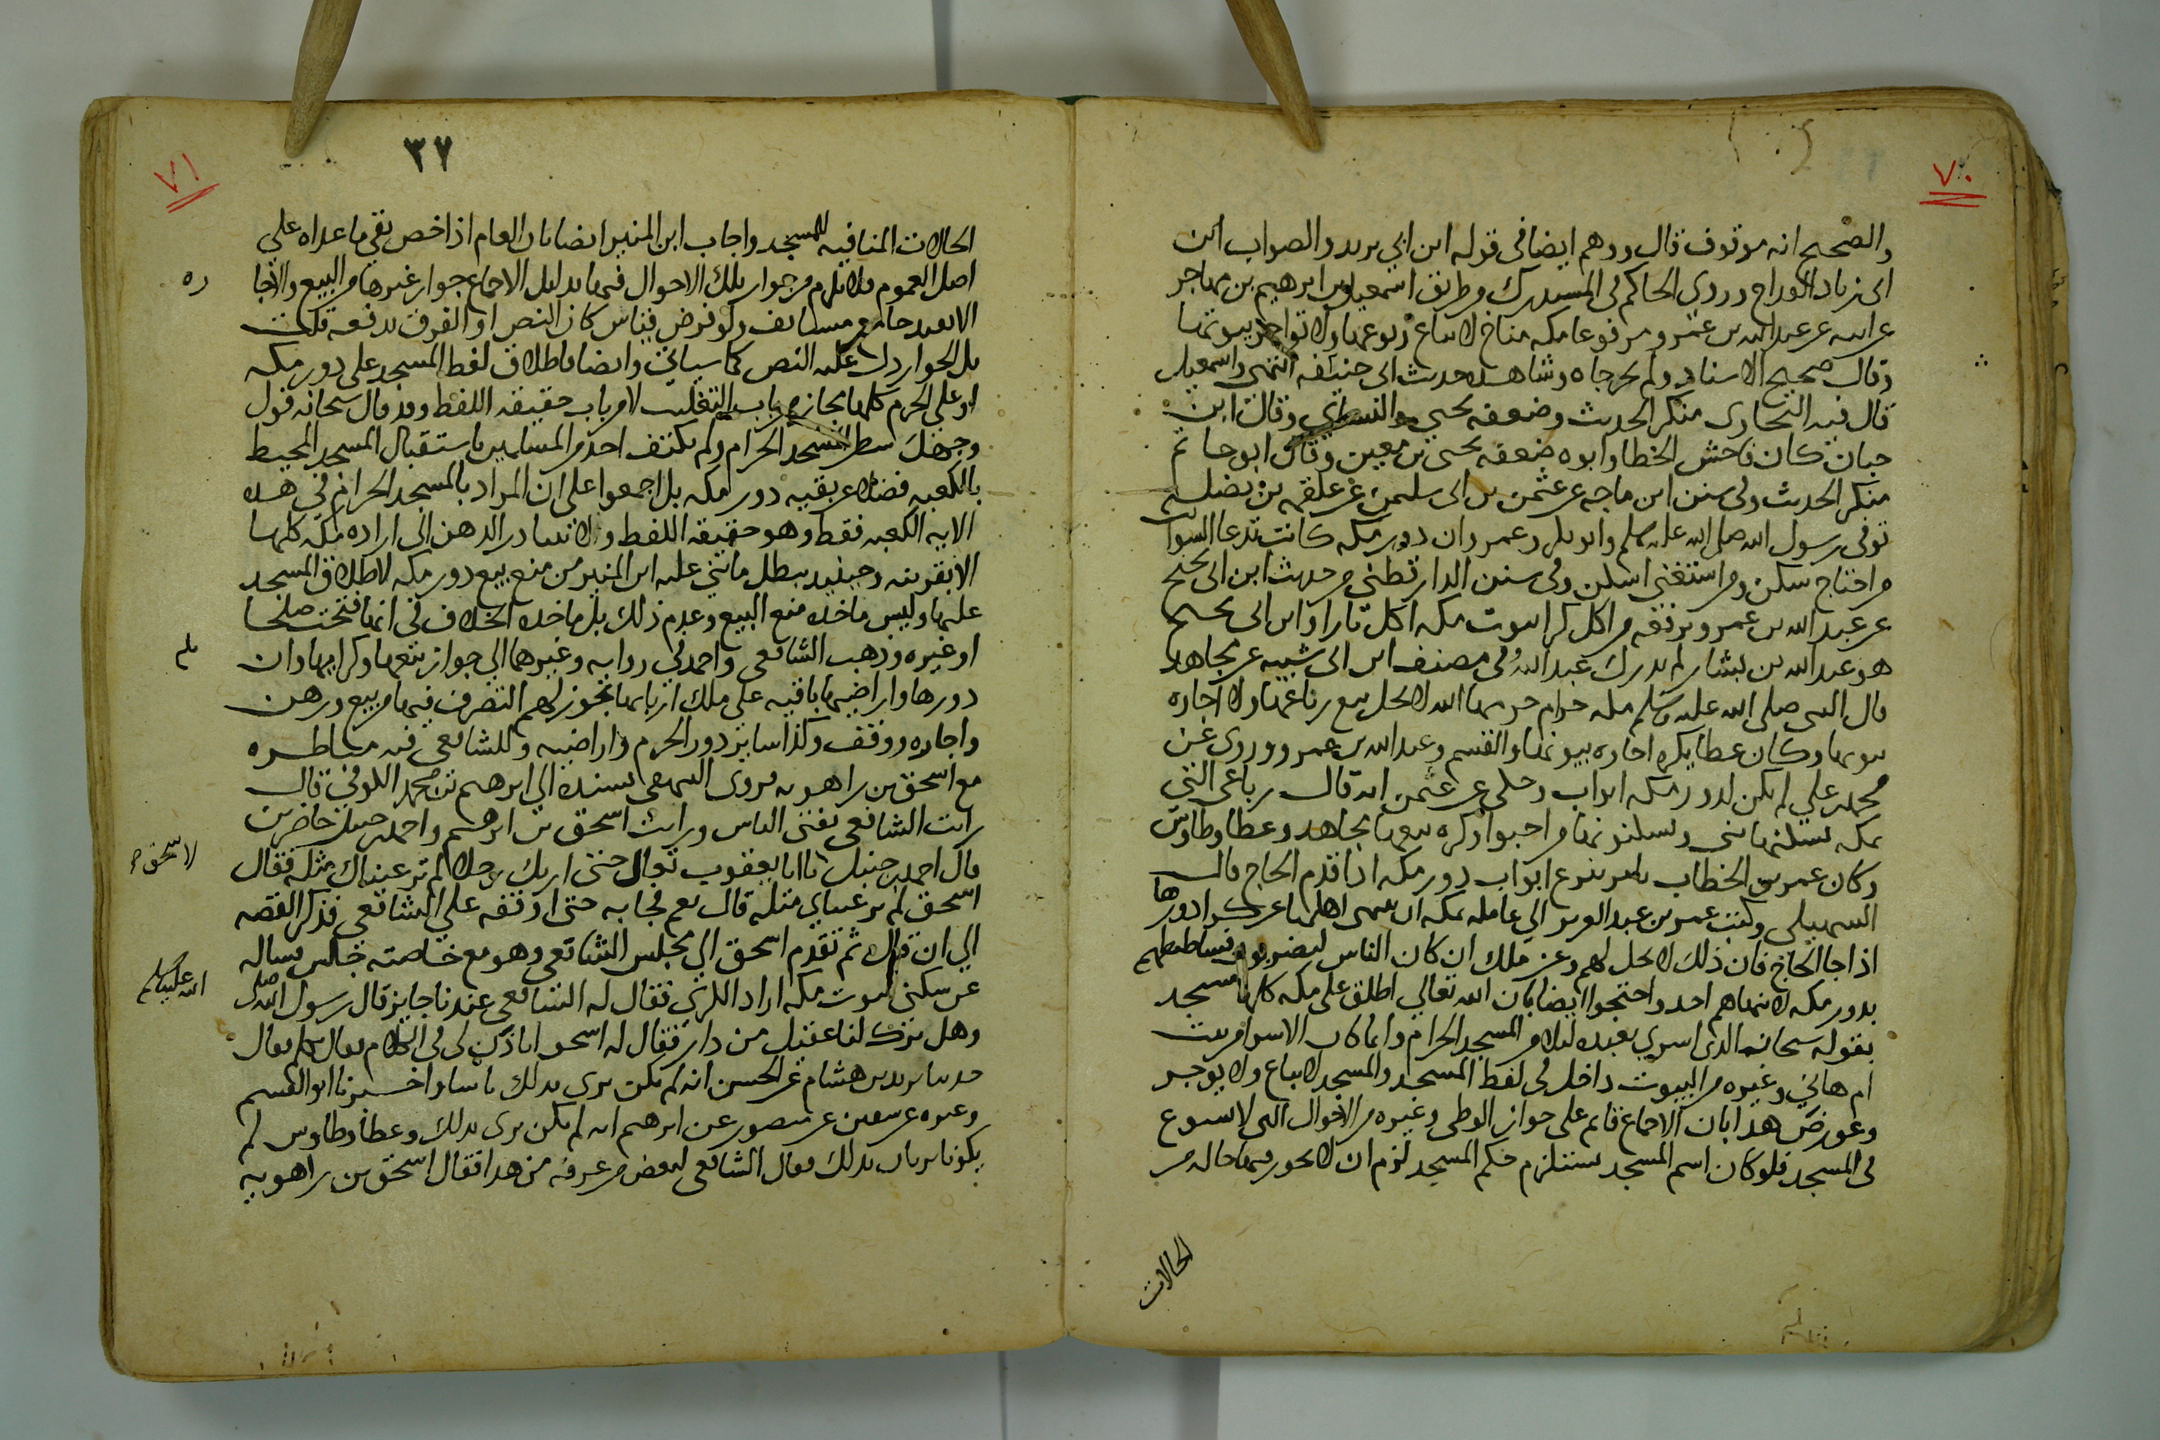 ٧٠
والصحيح انه موقوف قال ووهم ايضا في قوله ابن ابي يزيد والصواب ابن
ابي زياد القداح وروى الحاكم في المستدرك من طريق اسمعيل بن ابرهيم بن مهاجر
عن ابيه عن عبد الله بن عمرو مرفوعا مكه مناخ لا تباع رباعها ولا تواجر بيوتها
وقال صحيح الاسناد ولم يخرجاه وشاهده حديث ابي حنيفه انتهى واسمعيل
قال فيه البخاري منكر الحديث وضعفه يحيى والنسائي وقال ابن
حبان كان فاحش الخطا وابوه ضعفه يحيى بن معين وقال ابو حاتم
منكر الحديث وفي سنن ابن ماجه عن عثمن بن ابي سليمن عن علقمه بن نضله
توفي رسول الله صلى الله عليه وسلم وابو بكر وعمر وان دور مكه كانت تدعا السوايب
من احتاج سكن ومن استغنى اسكن وفي سنن الدارقطني من حديث ابن ابي نجيح
عن عبد الله بن عمرو يرفعه من اكل كرا بيوت مكه اكل نارا وابن ابي نجيح
هو عبد الله بن يسار لم يدرك عبد الله وفي مصنف ابن ابي شيبه عن مجاهد
قال النبي صلى الله عليه وسلم مكه حرام حرمها الله لا يحل بيع رباعها ولا اجاره
بيوتها وكان عطا يكره اجاره بيوتها والقسم وعبد الله بن عمرو وروى عن
محمد بن علي لم يكن لدور مكه ابواب وحكي عن عثمن انه قال رباعي التي
بمكه يسكنها بني ويسكنونها من احبوا وكره بيعها مجاهد وعطا وطاوس
وكان عمر بن الخطاب يامر بنزع ابواب دور مكه اذا قدم الحاج قال
السهيلي وكتب عمر بن عبد العزيز الى عامله بمكه ان ينهى اهلها عن كرا دورها
اذا جا الحاج فان ذلك لا يحل لهم وعن ملك ان كان الناس ليضربون فساطيطهم
بدور مكه لا ينهاهم احد واحتجوا ايضا بان الله تعالي اطلق على مكه كلها مسجد
بقوله سبحانه الذي اسري بعبده ليلا من المسجد الحرام وانما كان الاسرا من بيت
ام هاني وغيره من البيوت داخل في لفظ المسجد والمسجد لا يباع ولا يوجر
وعورض هذا بان الاجماع قايم على جواز الوطي وغيره من الاحوال التي لا تسوغ
في المسجد فلو كان اسم المسجد يستلزم حكم المسجد لزم ان لا يجوز فيها حاله من
الحالات
٧١
٣٧
الحالات المنافيه للمسجد واجاب ابن المنير ايضا بان العام اذا خص بقي ما عداه على
اصل العموم فلا يلزم من جواز تلك الاحوال فيها بدليل الاجماع جواز غيرها من البيع والاجا
ره
الا بعد جامع مستانف ولو فرض قياس كان النص او الفرق يدفعه قلت
بل الجواز دل عليه النص كما سياتي وايضا باطلاق لفظ المسجد على دور مكه
او على الحرم كلها مجاز من باب التغليب لا من باب حقيقه اللفظ وقد قال سبحانه فول
وجهك شطر المسجد الحرام ولم يكتف احد من المسلمين باستقبال المسجد المحيط
بالكعبه فضلا عن بقيه دور مكه بل اجمعوا على ان المراد بالمسجد الحرام في هذه
الايه الكعبه فقط وهو حقيقه اللفظ ولا تتبادر الذهن الى اراده مكه كلها
الا بقرينه وحينيد يبطل ما بني عليه ابن المنير من منع بيع دور مكه لاطلاق المسجد
عليها وليس ماخذه منع البيع وعدم ذلك بل ماخذه الخلاف في انها فتحت صلحا
او غيره وذهب الشافعي واحمد في روايه وغيرهما الي جواز بيعها وكرايها وان
دورها واراضيها باقيه على ملك اربابها يجوز لهم التصرف فيها من بيع ورهن
واجاره ووقف وكذا ساير دور الحرم واراضيه وللشافعي فيه مناظره
مع اسحق بن راهويه فروى البيهقي بسنده الي ابرهيم بن محمد الكوفي قال
رايت الشافعي يفتي الناس ورايت اسحق بن ابرهيم واحمد بن حنبل حاضرين
قال احمد بن حنبل يا ابا يعقوب تعال حتى اريك رجلا لم تر عيناك مثله فقال
لاسحق
اسحق لم تر عيناي مثله قال نعم فجا به حتى اوقفه علي الشافعي فذكر القصه
الي ان قال ثم تقدم اسحق الي مجلس الشافعي وهو مع خاصته جالس فساله
عن سكنى بيوت مكه اراد الكرى فقال له الشافعي عندنا جايز قال رسول الله صلى
الله عليه وسلم
وهل ترك لنا عقيل من دار فقال له اسحق اتاذن لي في الكلام فقال تكلم فقال
حدثنا يزيد بن هشام عن الحسن انه لم يكن يرى بذلك باسا واخبرنا ابو القسم
وغيره عن سفين عن منصور عن ابرهيم انه لم يكن يرى بذلك وعطا وطاوس لم
يكونا يريان بذلك فقال الشافعي لبعض من عرفه من هذا فقال اسحق بن راهويه